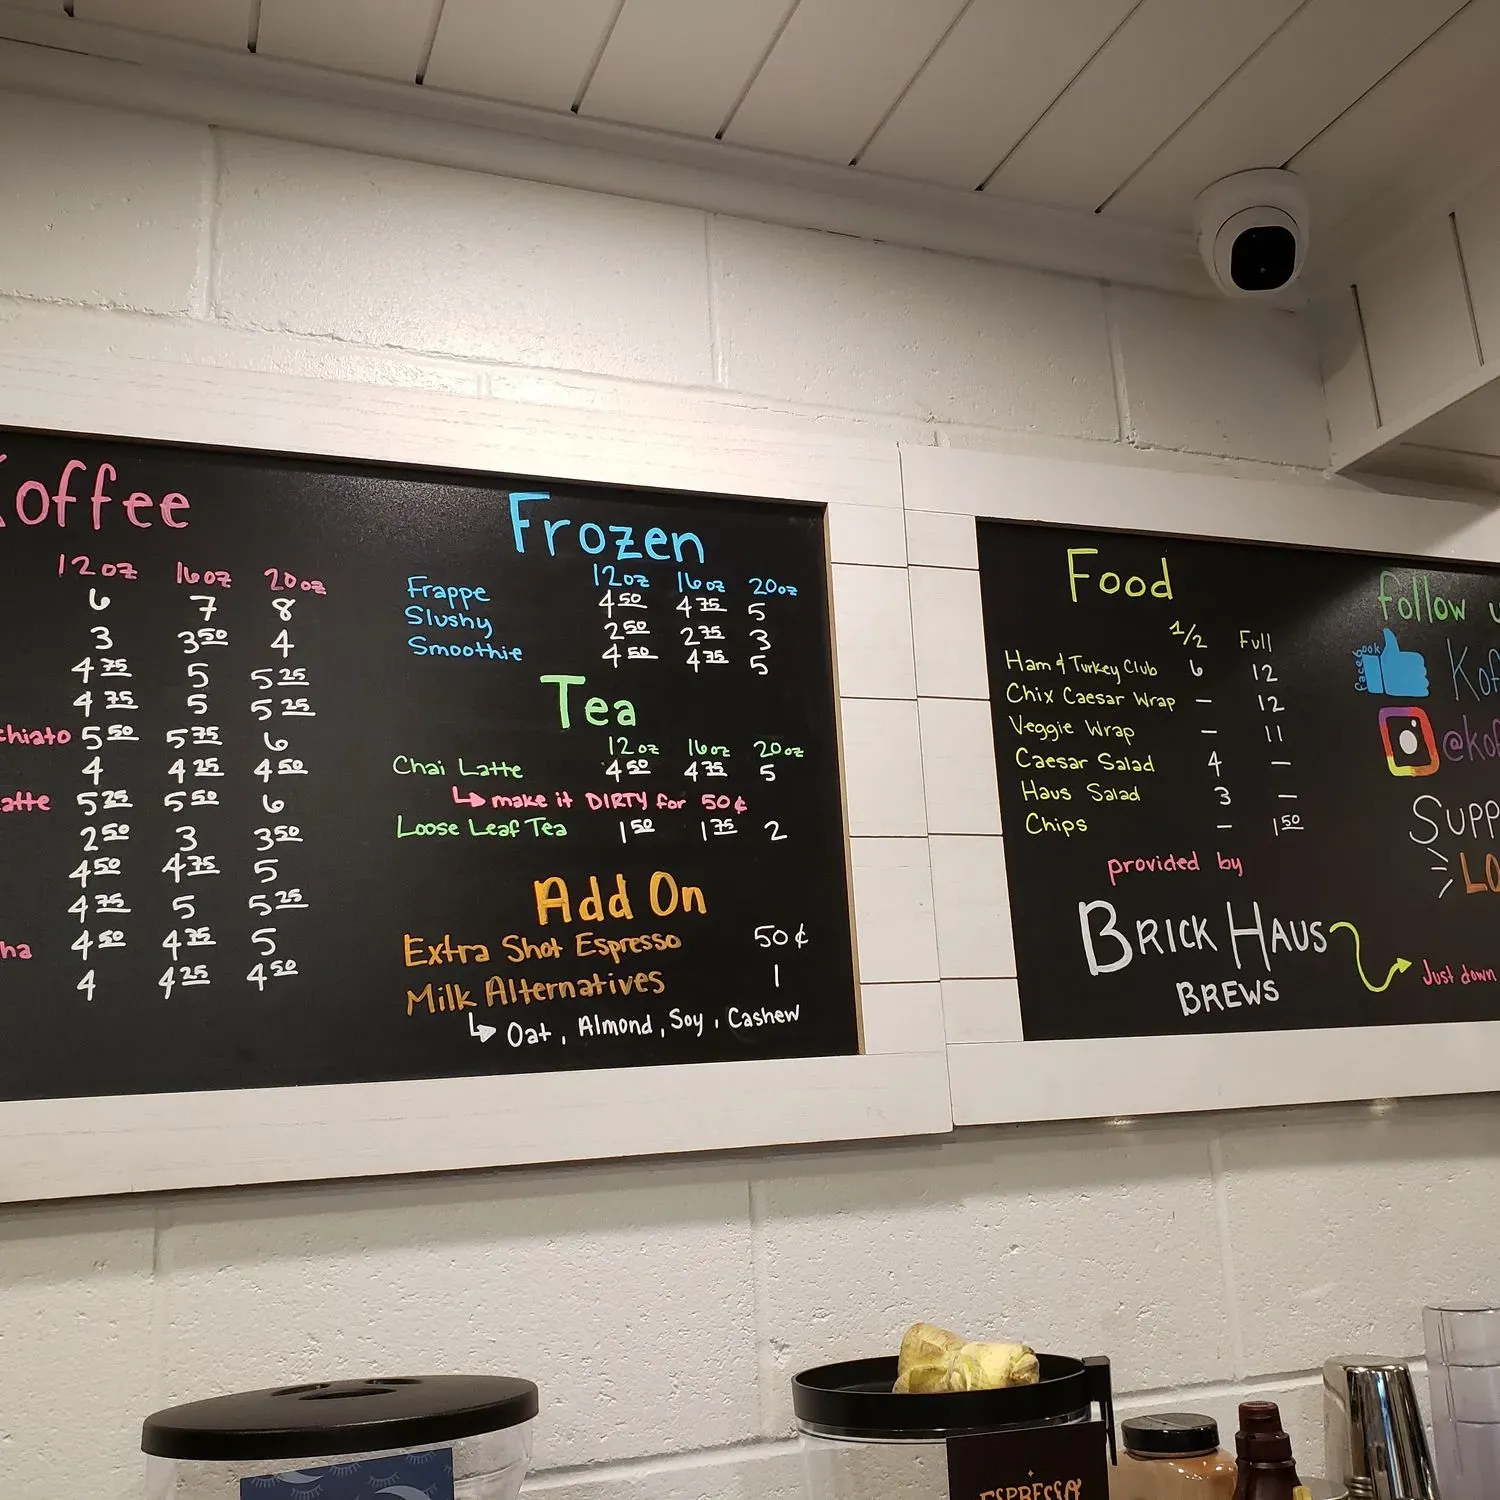 Koffee
12oz 16oz 20oz
6 7 8
3 3 50 4
4 75 5 5 25
4 75 5 5 25
chiato 5 50 5 75 6
4 4 25 4 50
atte 5 25 5 50 6
2 50 3 3 50
4 50 4 75 5
4 75 5 5 25
ha 4 50 4 75 5
4 4 25 4 50
Frozen
12oz 16oz 20oz
Frappe 4 50 4 75 5
Slushy 2 50 2 75 3
Smoothie 4 50 4 75 5
Tea
12oz 16oz 20oz
Chai Latte 4 50 4 75 5
make it DIRTY for 50¢
Loose Leaf Tea 1 50 1 75 2
Add On
Extra Shot Espresso 50¢
Milk Alternatives 1
Oat, Almond, Soy, Cashew
Food
1/2 Full
Ham & Turkey Club 6 12
Chix Caesar Wrap — 12
Veggie Wrap — 11
Caesar Salad 4 —
Haus Salad 3 —
Chips — 1 50
provided by
BRICK HAUS
BREWS
Follow u
facebook Kof
@kof
SUPP
LO
Just down
ESPRESSO